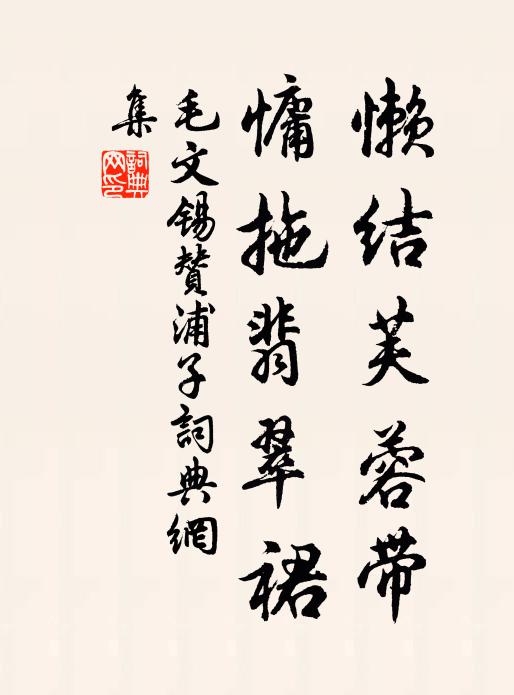 懶结芙蓉带
慵拖翡翠裙
毛文锡赞浦子詞典網
集
詞典
网印